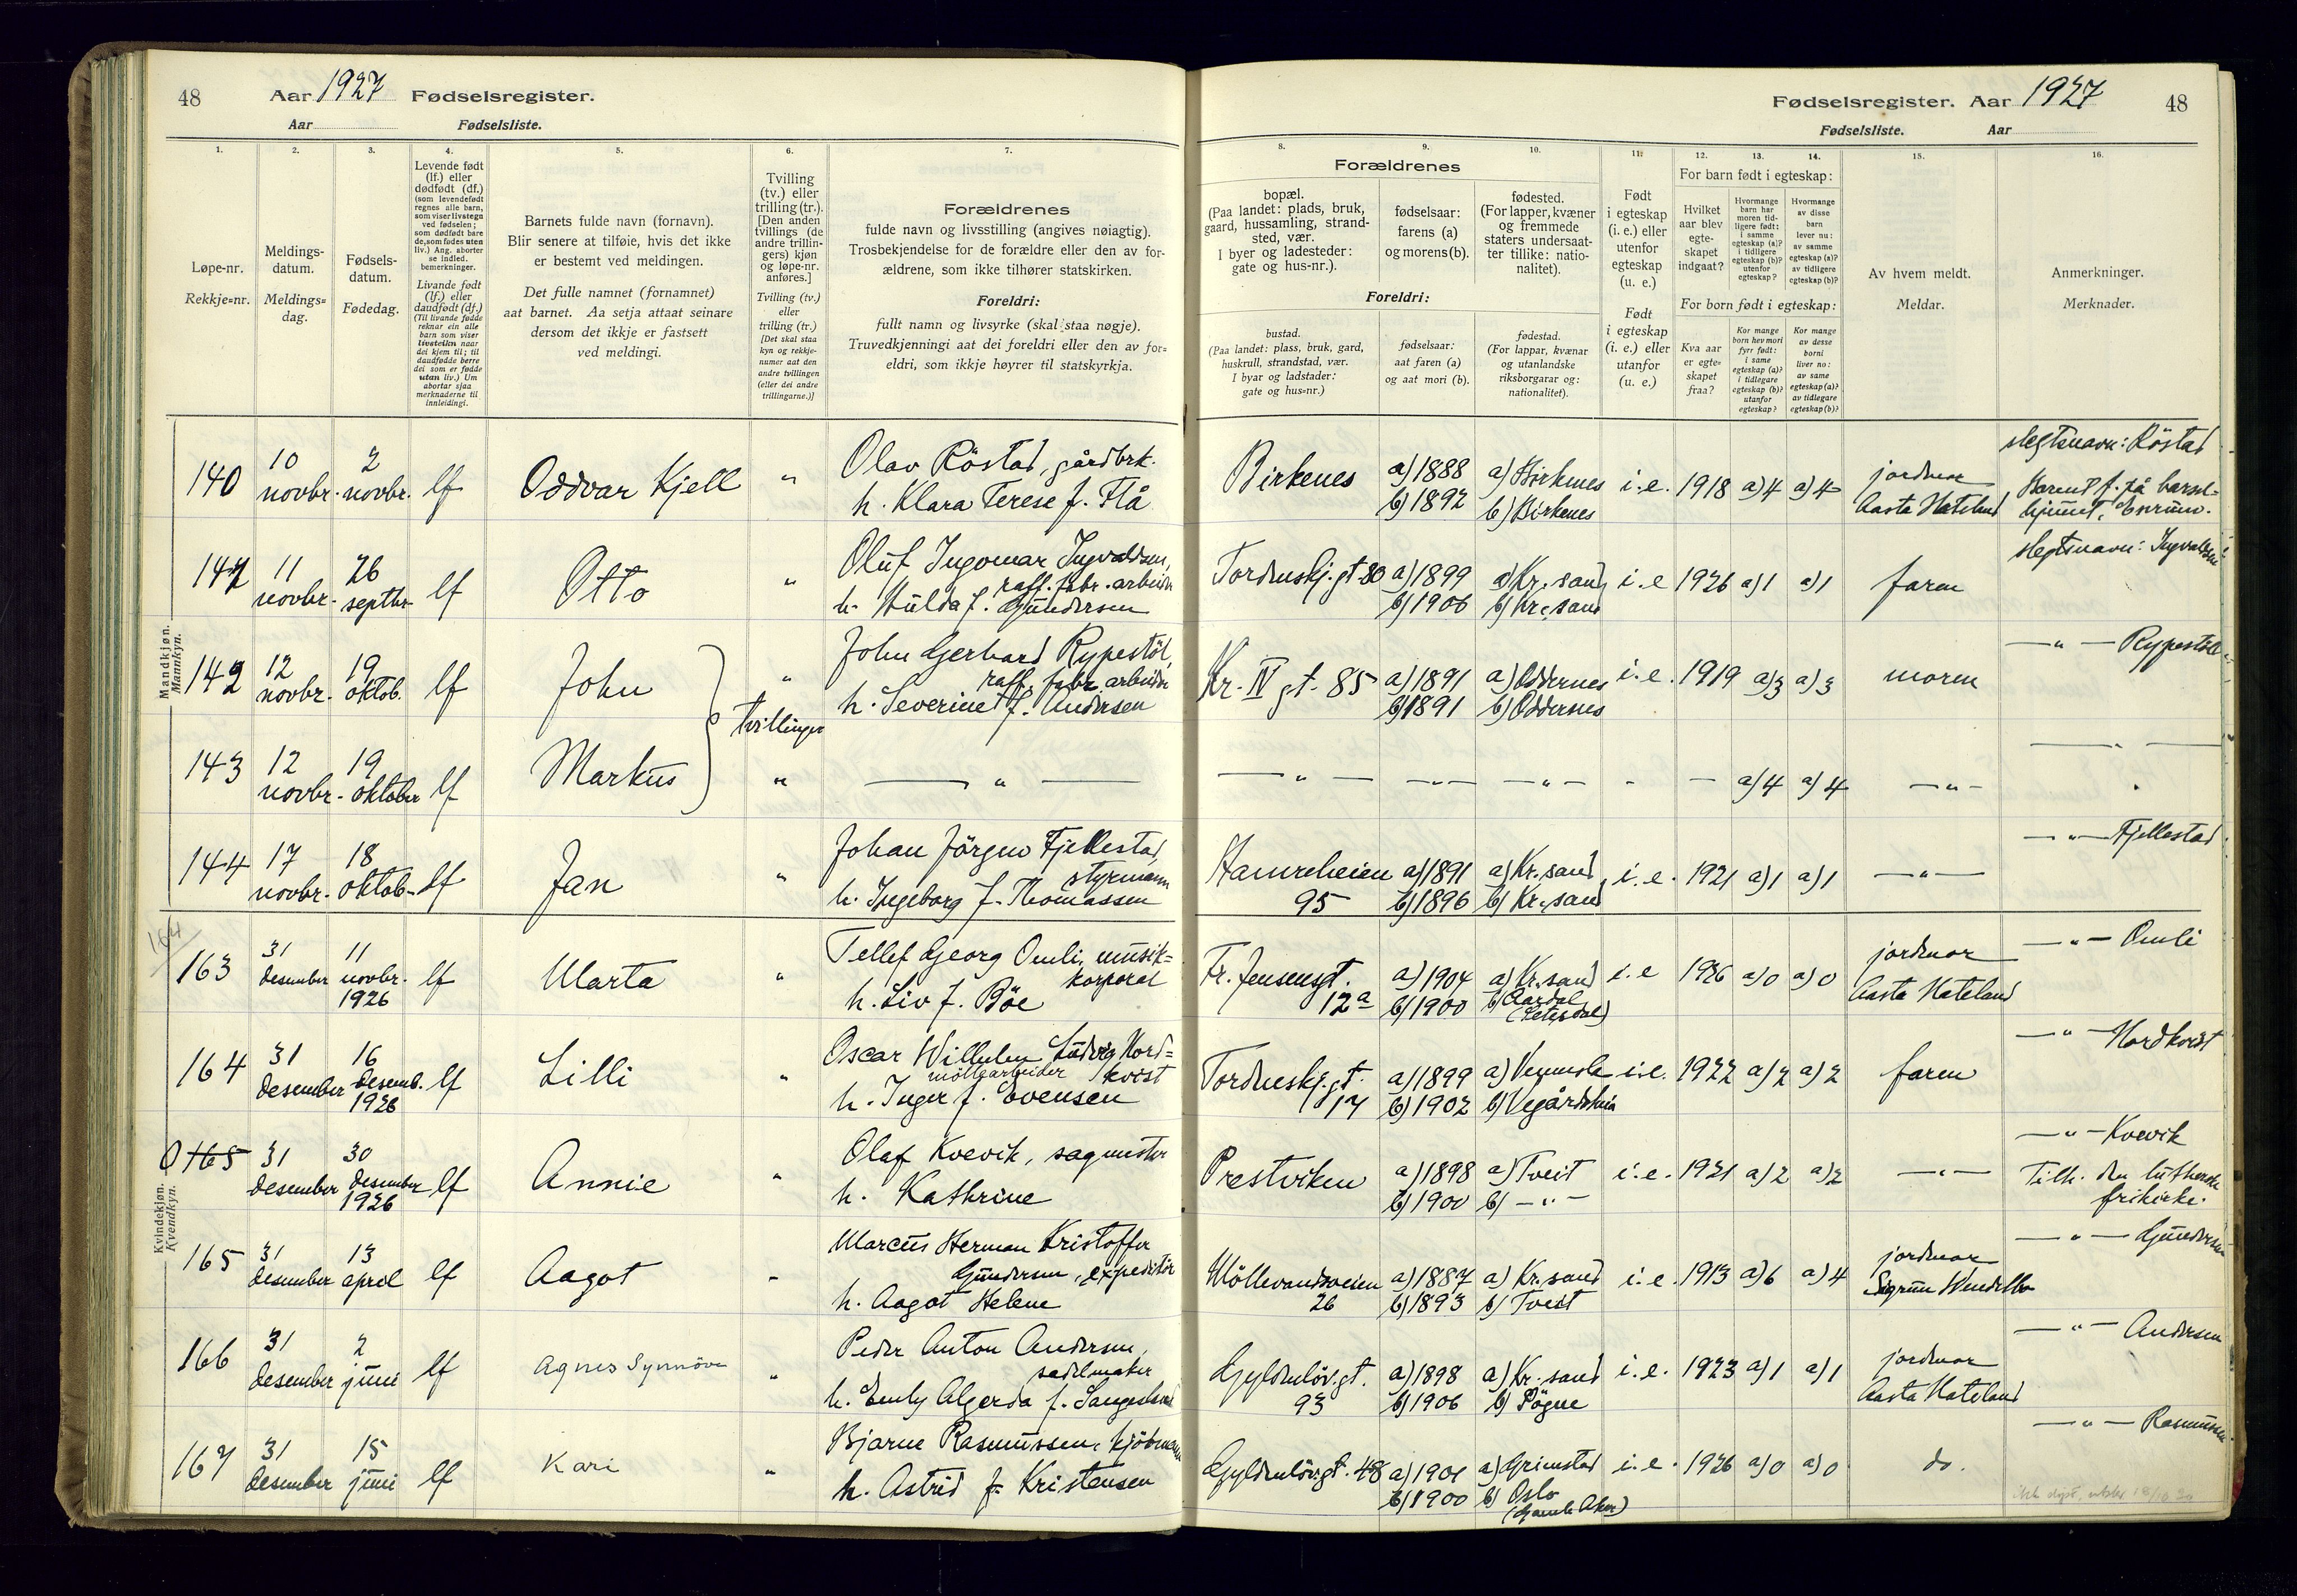 48 Aar 1927 Fødselsregister.
Aar Fødselsliste.
Fødselsregister. Aar 1927 48
Fødselsliste. Aar
1. 2. 3. 4. 5. 6. 7.
Løpe-nr.
Rekkje=nr.
Meldings-
datum.
Meldings=
dag.
Fødsels-
datum.
Fødedag.
Levende født
(lf.) eller
dødfødt (df.)
(som levendefødt
regnes alle barn,
som viser livstegn
ved fødselen;
som dødfødt bare
de, som fødes uten
liv.) Ang. aborter
se indled.
bemerkninger.
Livande født
(lf.) eller
daudfødt (df.)
(Til livande fødde
reknar ein alle
barn som viser
livsteikn naar
dei kjem til; til
daudfødde berre
dei som er fødde
utan liv.) Um
abortar sjaa
merknaderne til
innleidingi.
Barnets fulde navn (fornavn).
Blir senere at tilføie, hvis det ikke
er bestemt ved meldingen.
Det fulle namnet (fornamnet)
aat barnet. Aa setja attaat seinare
dersom det ikkje er fastsett
ved meldingi.
Tvilling
(tv.) eller
trilling (tr.).
[Den anden
tvillings (de
andre trillin-
gers) kjøn
og løpe-nr.
anføres.]
Tvilling (tv.)
eller
trilling (tr.)
[Det skal staa
kyn og rekkje-
numer aat den
andre tvillingen
(eller dei andre
trillingarne.)]
Forældrenes
fulde navn og livsstilling (angives nøiagtig).
Trosbekjendelse for de forældre eller den av for-
ældrene, som ikke tilhører statskirken.
Foreldri:
fullt namn og livsyrke (skal staa nøgje).
Truvedkjenningi aat dei foreldri eller den av for=
eldri, som ikkje høyrer til statskyrkja.
8. 9. 10. 11. 12. 13. 14. 15. 16.
Forældrenes
bopæl.
(Paa landet: plads, bruk,
gaard, hussamling, strand-
sted, vær.
I byer og ladesteder:
gate og hus-nr.).
fødselsaar:
farens (a)
og morens (b).
fødested.
(For lapper, kvæner
og fremmede
staters undersaat-
ter tillike: natio-
nalitet).
Foreldri:
bustad.
(Paa landet: plass, bruk, gard,
huskrull, strandstad, vær.
I byar og ladstader:
gate og hus=nr.)
fødselsaar:
aat faren (a)
og aat mori (b).
fødestad.
(For lappar, kvænar
og utanlandske
riksborgarar og:
nationalitet).
Født
i egteskap
(i. e.) eller
utenfor
egteskap
(u. e.)
Født
i egteskap
(i. e.) eller
utanfor
egteskap
(u. e.)
For barn født i egteskap:
Hvilket
aar blev
egte-
skapet
indgaat?
Hvormange
barn har
moren tid-
ligere født:
i samme
egteskap (a)?
i tidligere
egteskap (b)?
utenfor
egteskap?
Hvormange
av disse
barn
lever nu:
av samme
egteskap (a)?
av tidligere
egteskap (b)?
For born født i egteskap:
Kva aar
er egte-
skapet
fraa?
Kor mange
born hev mori
fyrr født:
i same
egteskap (a)?
i tidlegare
egteskap (b)?
utanfor
egteskap?
Kor mange
av desse
borni
liver no:
av same
egteskap (a)?
av tidlegare
egteskap (b)?
Av hvem meldt.
Meldar.
Anmerkninger.
Merknader.
Mandkjøn.
Mannkyn.
140 10 novbr. 2 novbr. lf Oddvar Kjell " Olav Röstad, gårdbrk.
h. Klara Terese f. Flå
Birkenes a) 1888 a) Birkenes i. e. 1918 a) 4 a) 4 jordmor
b) 1892 b) Birkenes Aasta Hateland
slegtsnavn: Röstad
Barnet f. på barsel=
hjemmet,
141 11 novbr. 26 septbr. lf Otto " Oluf Ingomar Ingvaldsen,
raff. fabr. arbeider
h. Hulda f. Gundersen
Tordenskj. gt 80 a) 1899 a) Kr.sand i. e 1926 a) 1 a) 1 faren
b) 1906 b) Kr.sand
slegtsnavn: Ingvaldsen
142 12 novbr. 19 oktob. lf John " John Gerhard Rypestöl,
raff. fabr. arbeider
h. Severine f. Andersen
tvillinger
Kr. IV gt. 85 a) 1891 a) Oddernes i. e. 1919 a) 3 a) 3 moren
b) 1891 b) Oddernes
— " — Rypestöl
143 12 novbr. 19 oktober lf Markus " — " —
— " — — " — — " — - — a) 4 a) 4 — " —
— " —
144 17 novbr. 18 oktob. lf Jan " Johan Jörgen Fjellestad,
styrmann
h. Ingeborg f. Thomassen
Hamreheien a) 1891 a) Kr.sand, i. e. 1921 a) 1 a) 1 — " —
95 b) 1896 b) Kr.sand
— " — Fjellestad
Kvindekjøn.
Kvendkyn.
164
163 31 desember 11 novbr. 1926 lf Marta " Tellef Georg Omli, musik=
korporal
h. Liv f. Böe
Fr. Jensensgt. a) 1904 a) Kr.sand i. e 1926 a) 0 a) 0 jordmor
12a b) 1900 b) Aardal Aasta Hateland
(Setesdal)
— " — Omli
164 31 desember 16 desemb. 1926 lf Lilli " Oscar Wilhelm Ludvig Nord=
möllearbeider kvist
h. Inger f. Evensen
Tordneskj. gt. a) 1899 a) Vennesla i. e. 1922 a) 2 a) 2 faren
17 b) 1902 b) Vegårdshei
— " — Nordkvist
0 165 31 desember 30 desember 1926 lf Annie " Olaf Kvevik, sagmester
h. Kathrine
Prestviken a) 1898 a) Tveit i. e. 1921 a) 2 a) 2 — " —
b) 1900 b) — " —
— " — Kvevik
Tilh. den lutherske
frikirke.
165 31 desember 13 april lf Aagot - Marcus Herman Kristoffer
Gundersen, expeditör
h. Aagot Helene
Möllevandsveien a) 1887 a) Kr.sand i. e. 1913 a) 6 a) 4 jordmor
26 b) 1893 b) Tveit Sigrun
— " — Gundersen
166 31 desember 2 juni lf Agnes Synnöve " Peder Anton Andersen,
sadelmaker
h. Emly Algerda f.
Gyldenlöv.gt. a) 1898 a) Kr.sand i. e. 1923 a) 1 a) 1 jordmor
93 b) 1906 b) Sögne Aasta Hateland
— " — Andersen
167 31 desember 15 juni lf Kari " Bjarne Rasmussen, kjöbmann
h. Astrid f. Kristensen
Gyldenlöv.gt. 48 a) 1901 a) Grimstad i. e. 1926 a) 0 a) 0 do.
b) 1900 b) Oslo
(Gamle Aker)
— " — Rasmussen